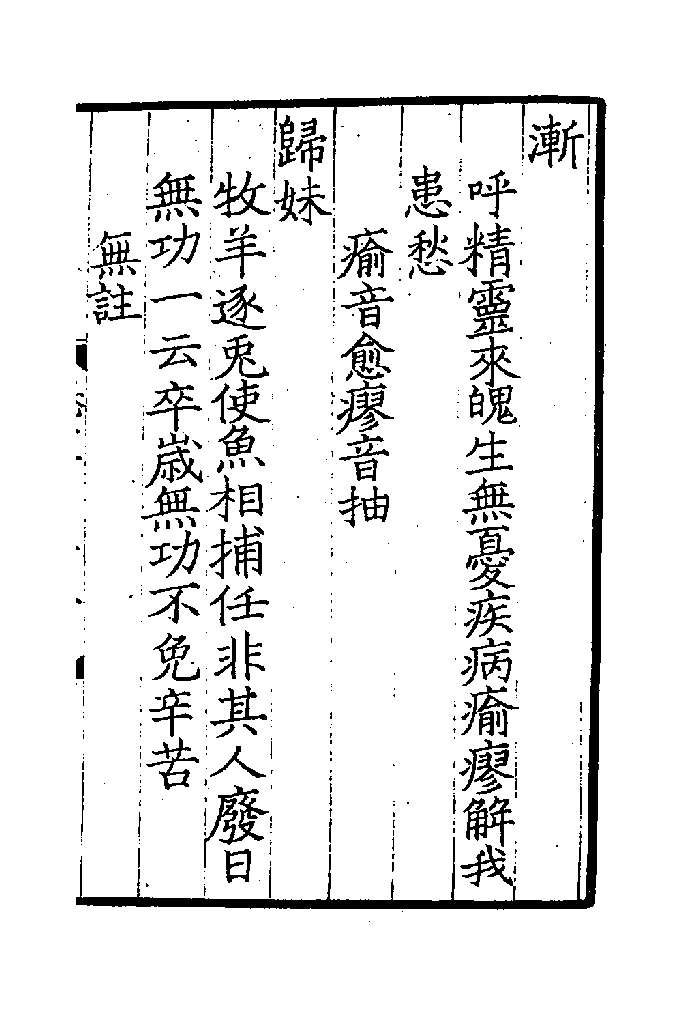 漸
呼精靈來魄生無憂疾病瘉瘳解我
患愁
瘉音愈瘳音抽
歸妹
牧羊逐兎使魚相捕任非其人廢日
無功一云卒歲無功不免辛苦
無註